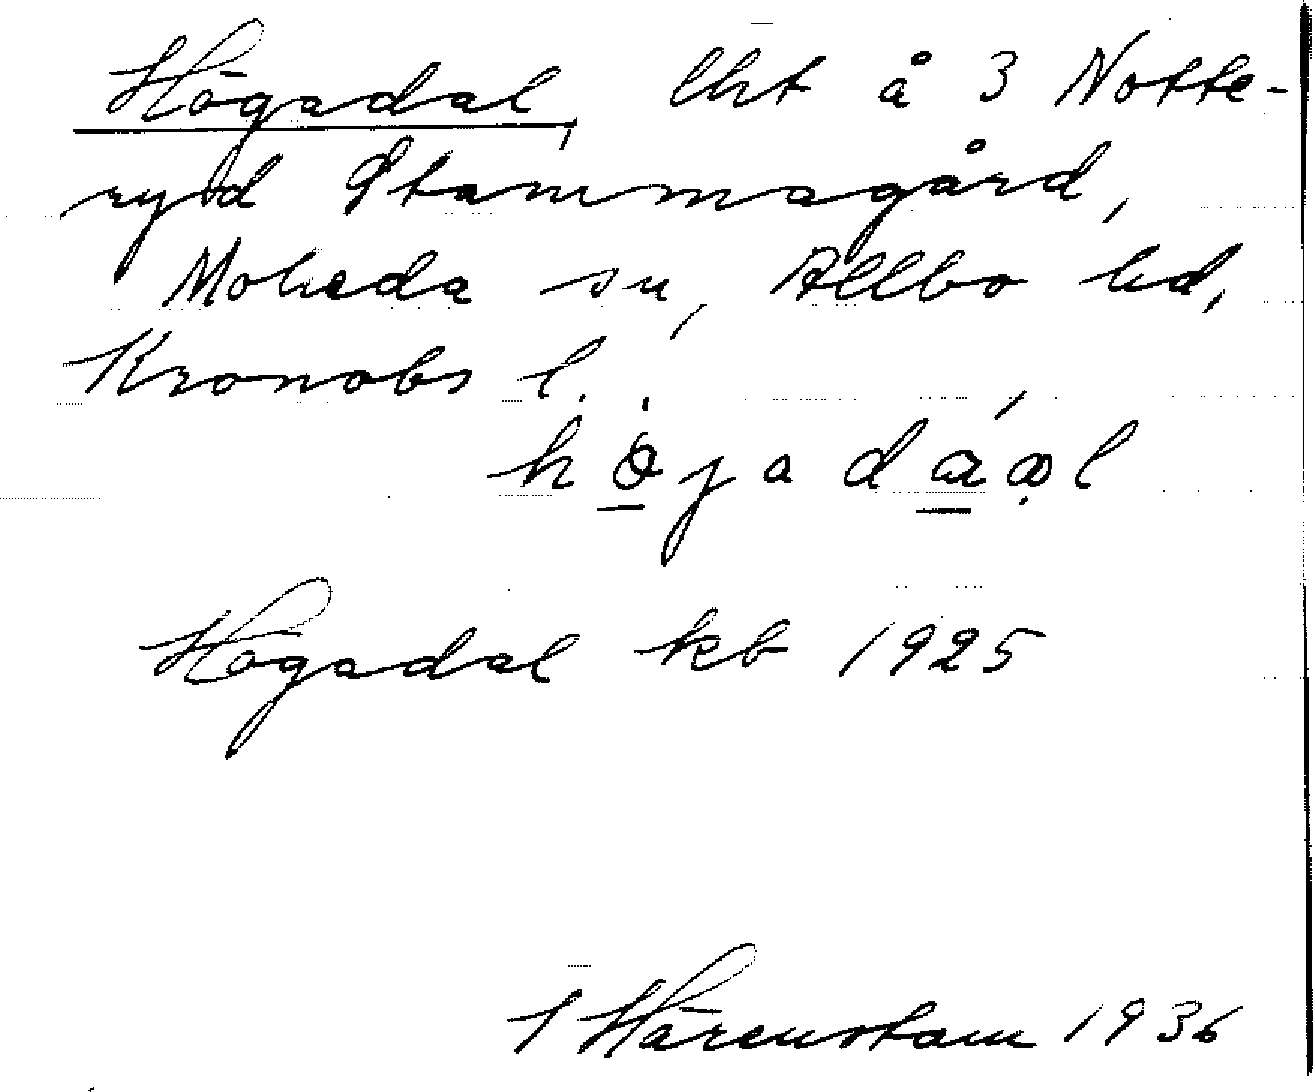 Högadal, lht å 3 Notte-
ryd Stammagård,
Moheda sn, Allbo hd,
Kronobs l.
Högadal kb 1925
Hårenstam 1936